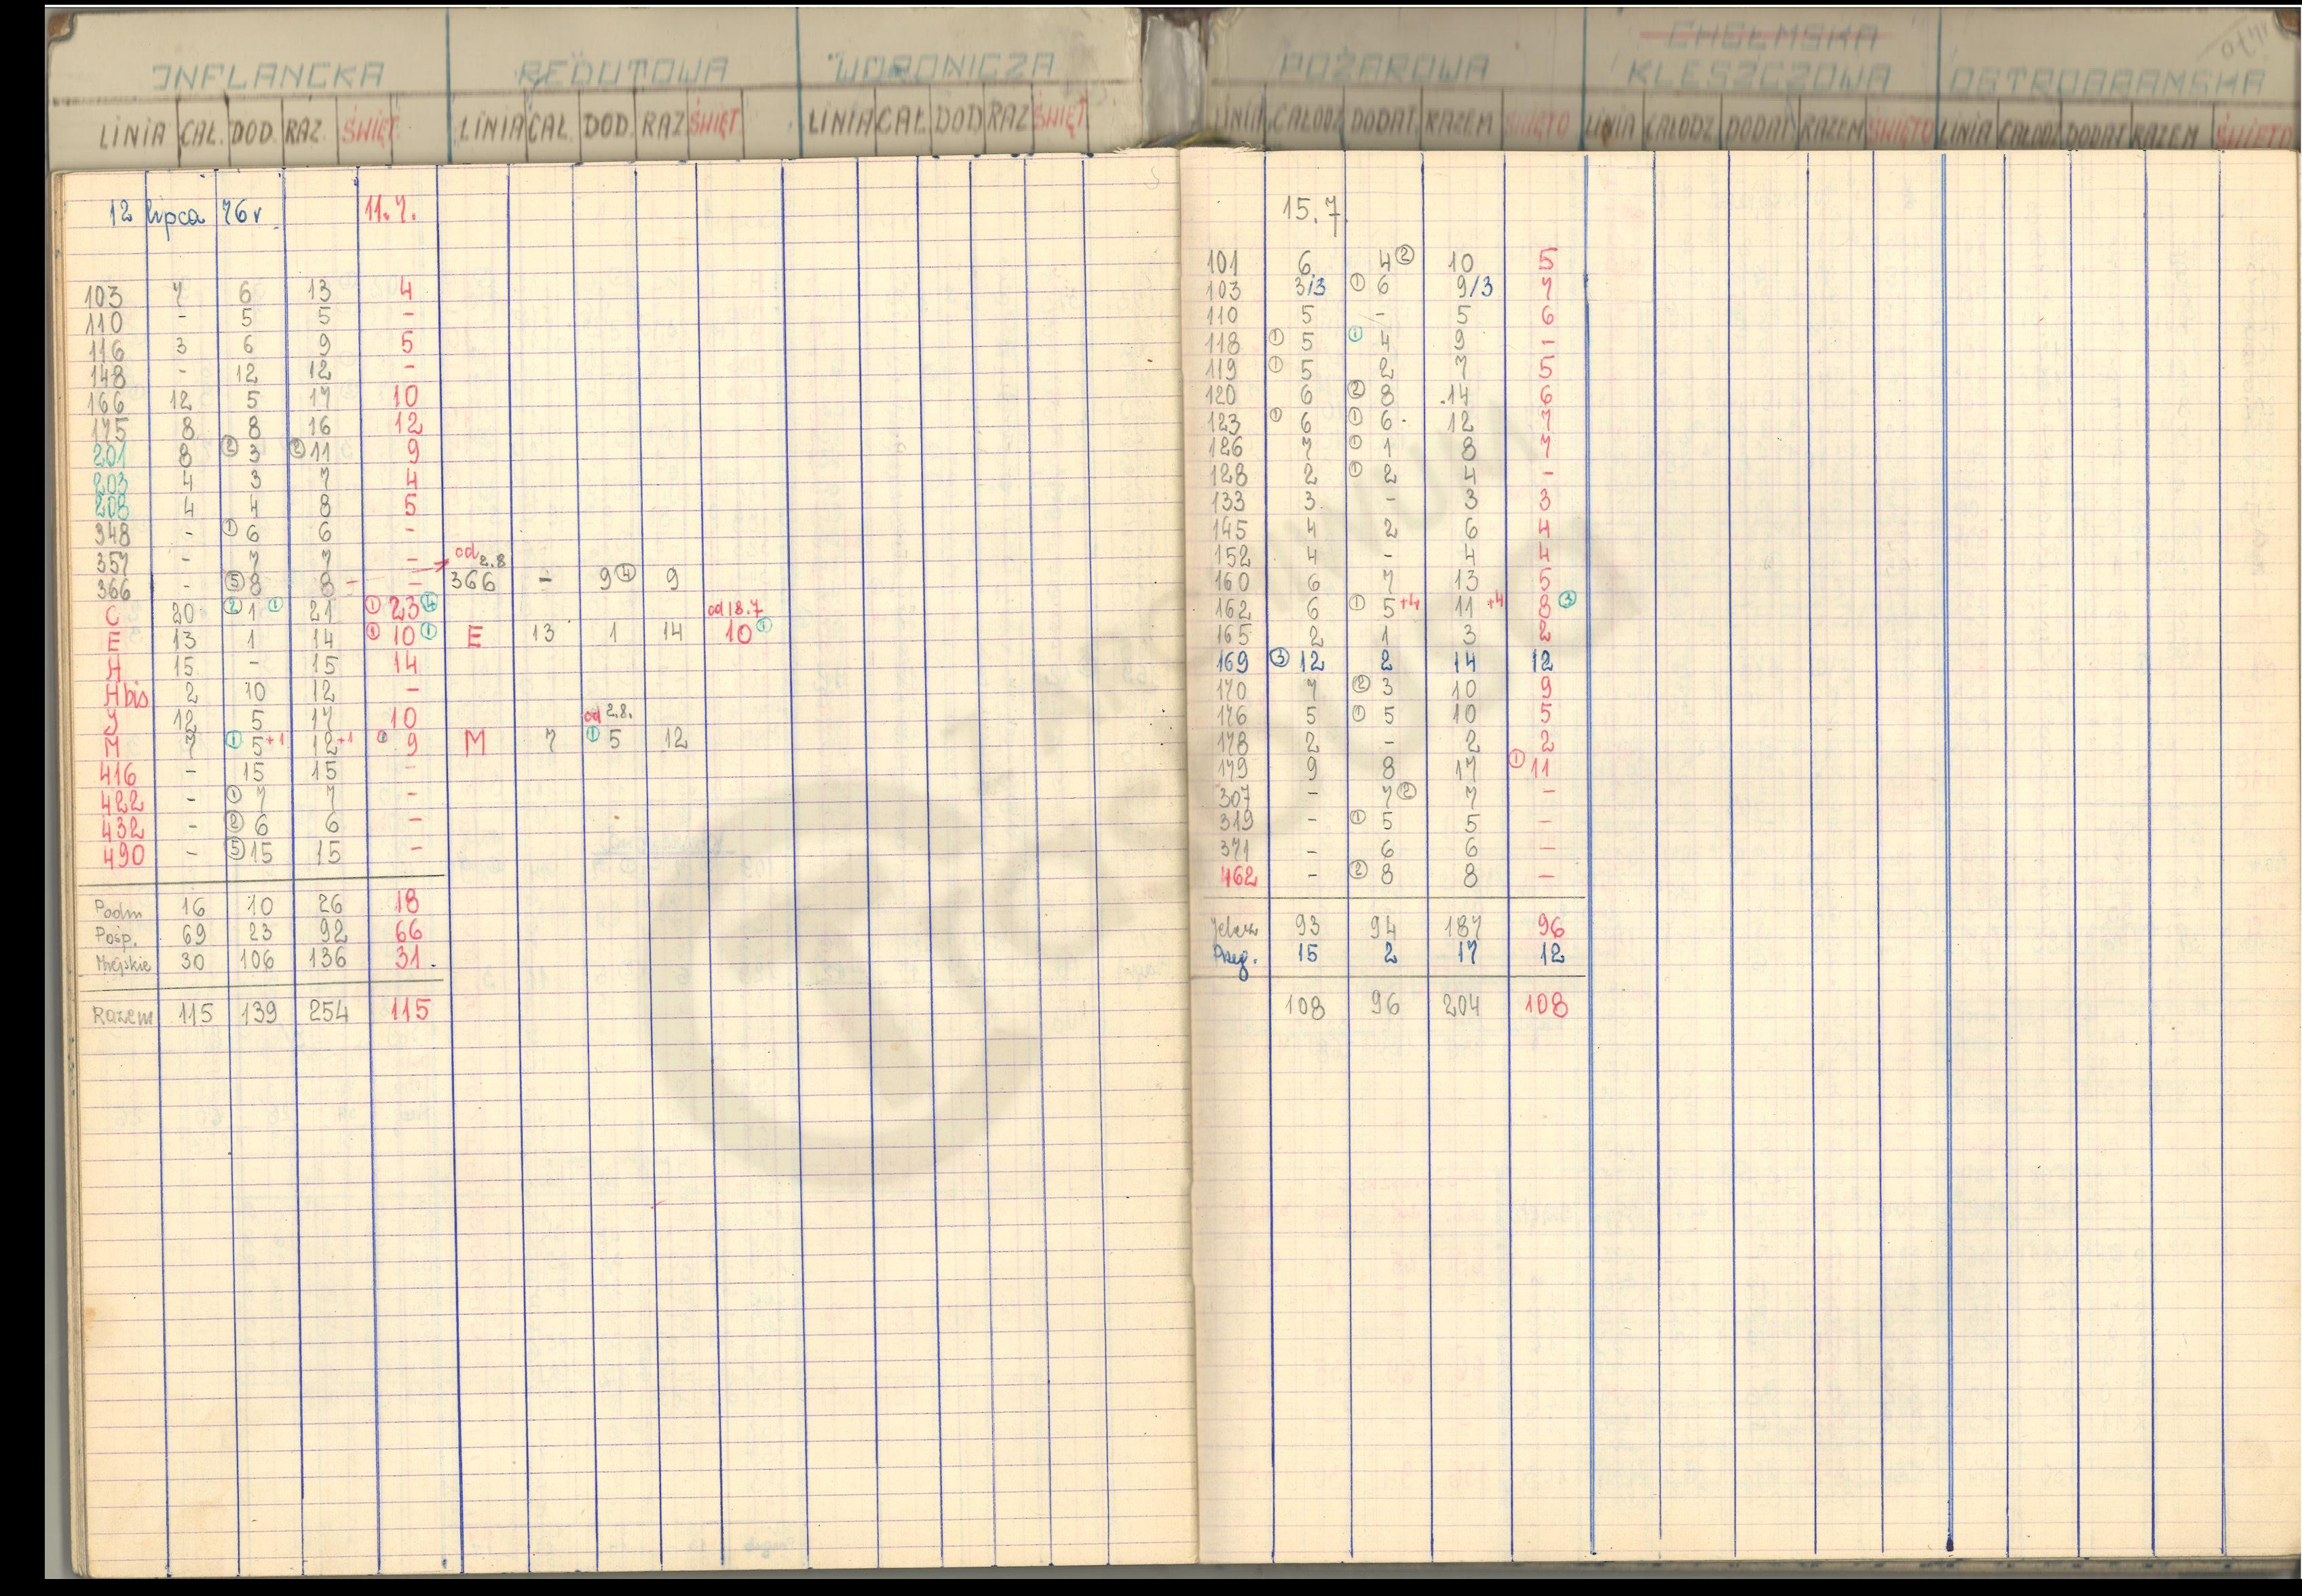 INFLANCKA REDUTOWA WORONICZA
LINIA CAŁ. DOD. RAZ. ŚWIĘT. LINIA CAŁ. DOD. RAZ ŚWIĘT LINIA CAŁ DOD RAZ ŚWIĘT
12 lipca 76 r. 11.7.
103 7 6 13 4
110 - 5 5 -
116 3 6 9 5
148 - 12 12 -
166 12 5 17 10
175 8 8 16 12
201 8 ② 3 ② 11 9
203 4 3 7 4
208 4 4 8 5
348 - ① 6 6 -
357 - 7 7 - od 2.8
366 - ⑤ 8 8 - - 366 - 9 ④ 9
C 20 ② 1 ① 21 ① 23 ④ od 18.7
E 13 1 14 ① 10 ① E 13 1 14 10 ①
H 15 - 15 14
H bis 2 10 12 -
J 12 5 17 10 od 2.8.
M 7 ① 5 +1 12 +1 ① 9 M 7 ① 5 12
416 - 15 15 -
422 - ① 7 7 -
432 - ② 6 6 -
490 - ⑤ 15 15 -
Podm 16 10 26 18
Pośp. 69 23 92 66
Miejskie 30 106 136 31.
Razem 115 139 254 115
POŻAROWA CHEŁMSKA KLESZCZOWA OSTROBRAMSKA
LINIA CAŁODZ DODAT. RAZEM ŚWIĘTO LINIA CAŁODZ DODAT RAZEM ŚWIĘTO LINIA CAŁODZ DODAT RAZEM ŚWIĘTO
15.7.
101 6 4 ② 10 5
103 3/3 ① 6 9/3 7
110 5 - 5 6
118 ① 5 ① 4 9 -
119 ① 5 2 7 5
120 6 ② 8 14 6
123 ① 6 ① 6 12 7
126 7 ① 1 8 7
128 2 ① 2 4 -
133 3 - 3 3
145 4 2 6 4
152 4 - 4 4
160 6 7 13 5
162 6 ① 5 +4 11 +4 8 ③
165 2 1 3 2
169 ③ 12 2 14 12
170 7 ② 3 10 9
176 5 ① 5 10 5
178 2 - 2 2
179 9 8 17 ① 11
307 - 7 ② 7 -
319 - ① 5 5 -
371 - 6 6 -
462 - ② 8 8 -
Jelcz 93 94 187 96
Przeg. 15 2 17 12
108 96 204 108